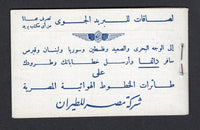 لصاقات للبريد الجوى
إلى الوجه البحرى والصعيد وفلسطين وسوريا ولبنان وقبرص
سافر دائما وأرسل خطاباتك وطرودك
على
طائرات الخطوط الهوائية المصرية
شركة مصر للطيران